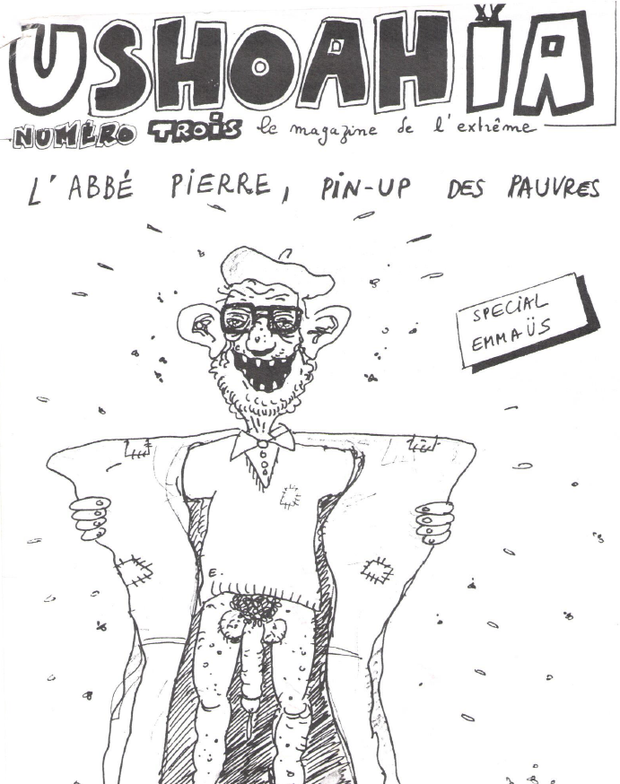 USHOAHÏA
NUMÉRO TROIS le magazine de l'extrême
L'ABBÉ PIERRE, PIN-UP DES PAUVRES
SPECIAL
EMMAÜS
E.